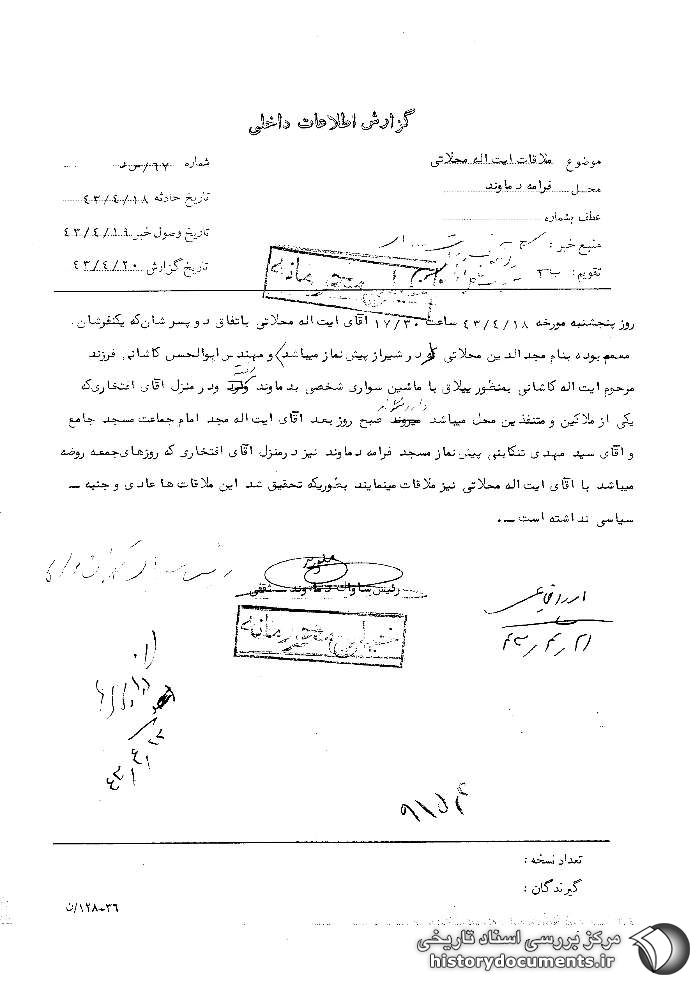 گزارش اطلاعات داخلی
موضوع ملاقات ایت اله محلاتی
شماره
محل فرامه دماوند
تاریخ حادثه ۴۳/۴/۱۸
عطف بشماره
تاریخ وصول خبر ۴۳/۴/۱۹
منبع خبر :
تاریخ گزارش ۴۳/۴/۲۰
تقویم : ب ۳
خیلی محرمانه
روز پنجشنبه مورخه ۴۳/۴/۱۸ ساعت ۱۷/۳۰ آقای ایت اله محلاتی باتفاق دو پسرشان که یکنفرشان
معمم بوده بنام مجدالدین محلاتی (که در شیراز پیش نماز میباشد) و مهندس ابوالحسن کاشانی فرزند
مرحوم ایت اله کاشانی بمنظور ییلاق با ماشین سواری شخصی بدماوند ودر منزل آقای افتخاری که
یکی از ملاکین و متنفذین محل میباشد میروند صبح روز بعد آقای ایت اله مجد امام جماعت مسجد جامع
و آقای سید مهدی تنکابنی پیش نماز مسجد فرامه دماوند نیز درمنزل آقای افتخاری که روزهای جمعه روضه
میباشد با آقای ایت اله محلاتی نیز ملاقات مینمایند بطوریکه تحقیق شد این ملاقات ها عادی و جنبه ــ
سیاسی نداشته است ــ.
رئیس ساواک دماوند ــ ثقفی
خیلی محرمانه
۴۳/۴/۲۱
تعداد نسخه :
گیرندگان :
۳۶-۱۲۸/ن
مرکز بررسی اسناد تاریخی
historydocuments.ir